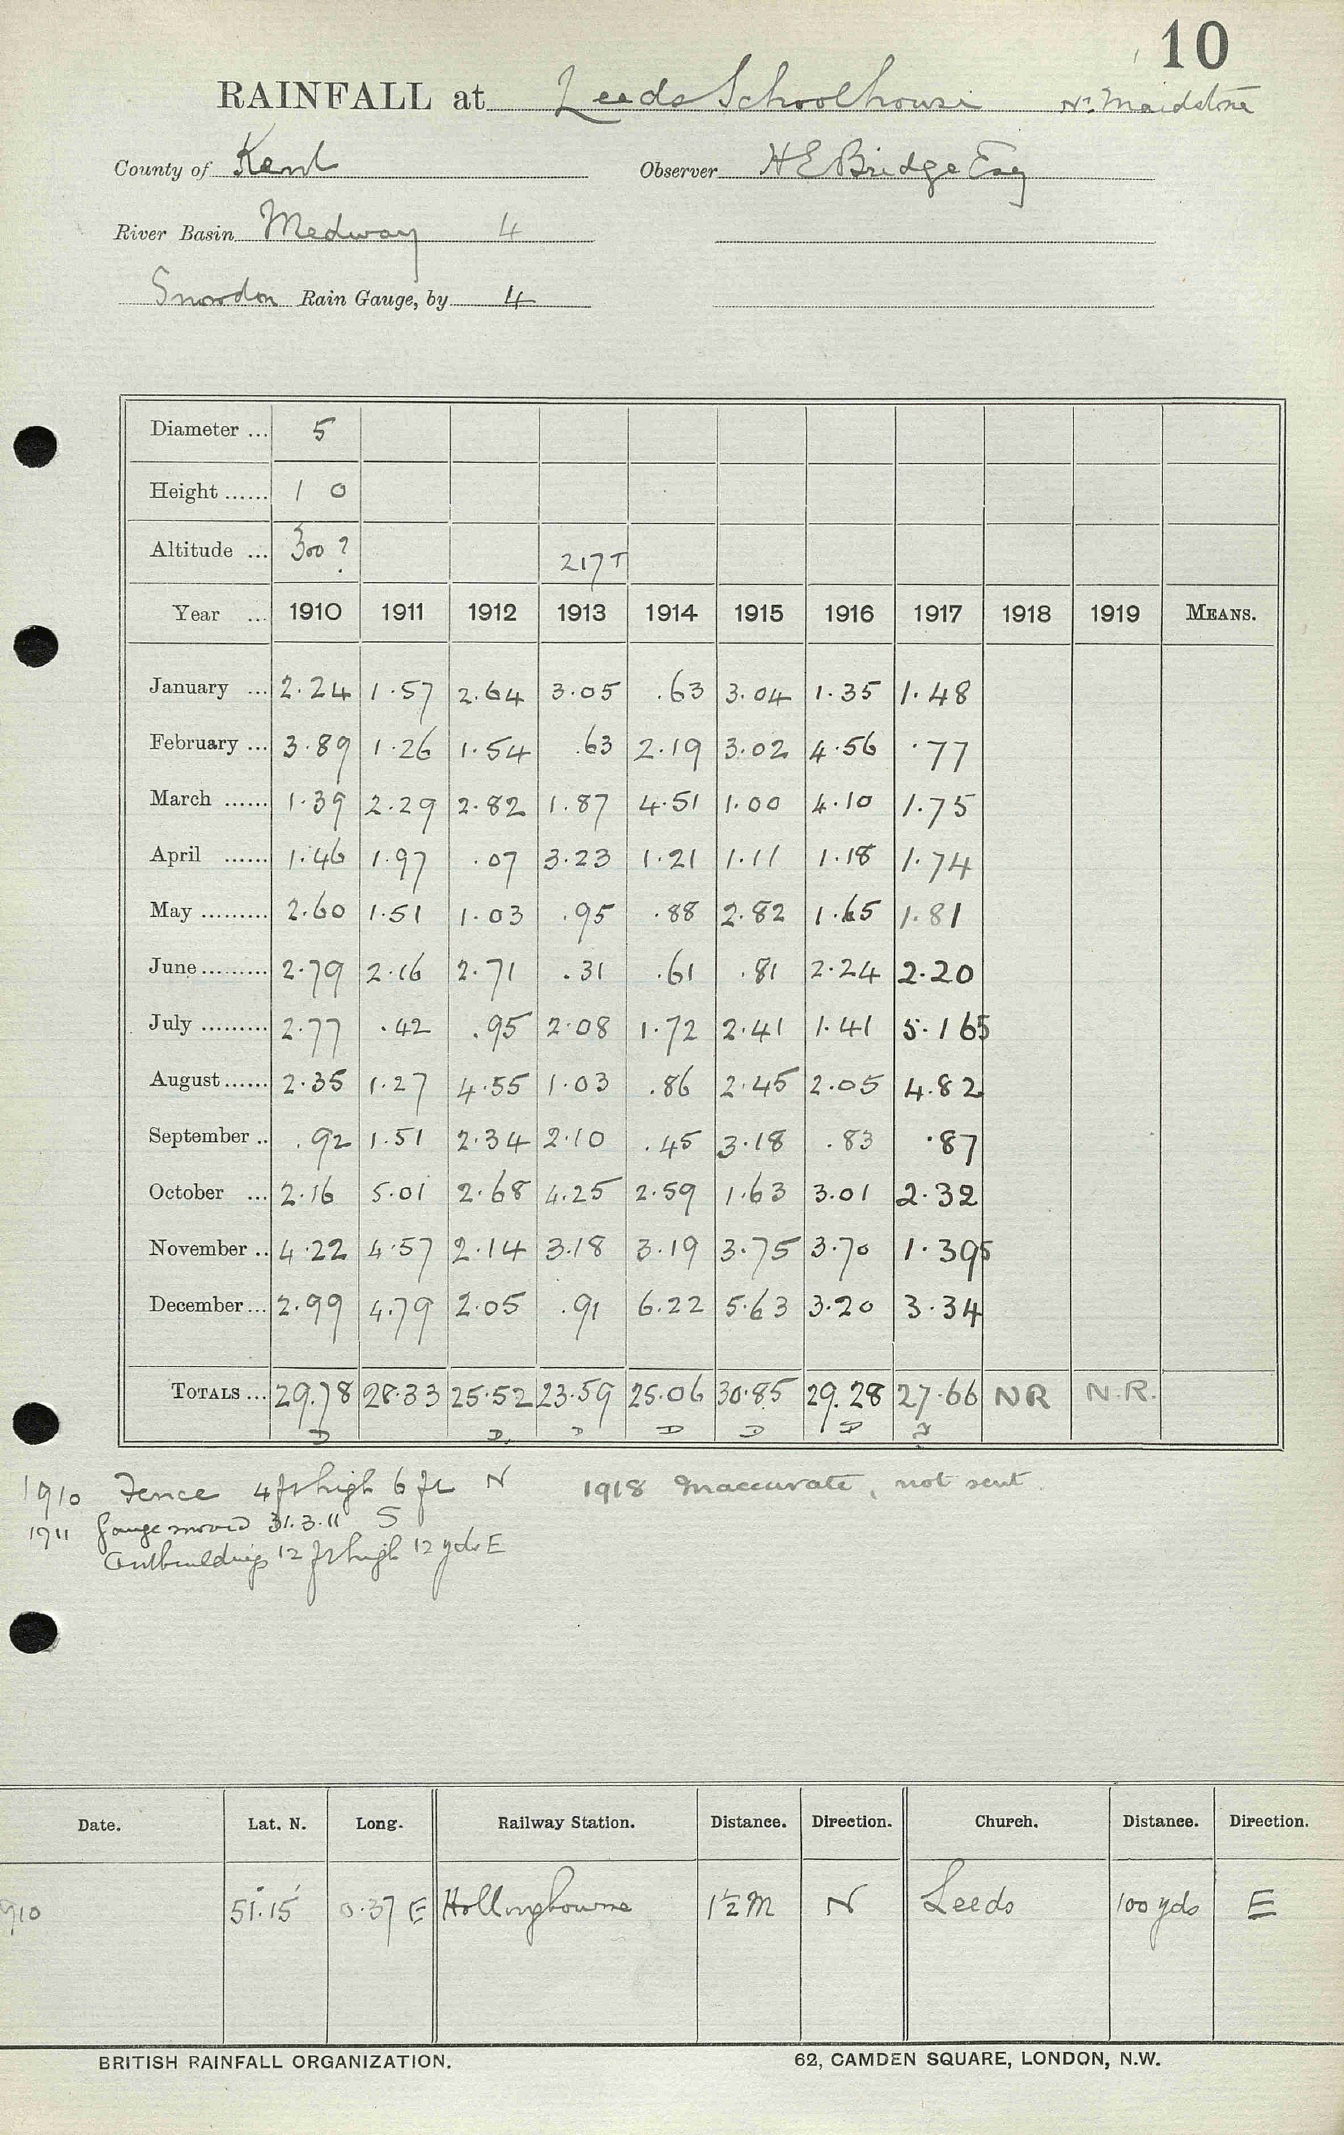 10
RAINFALL at Leeds Schoolhouse Nr. Maidstone
County of Kent Observer H E Bridge Esq
River Basin Medway 4
Snowdon Rain Gauge, by 4
Diameter ... 5
Height ...... 1 0
Altitude ... 300 ? 217 T
Year ... 1910 1911 1912 1913 1914 1915 1916 1917 1918 1919 MEANS.
January ... 2.24 1.57 2.64 3.05 .63 3.04 1.35 1.48
February ... 3.89 1.26 1.54 .63 2.19 3.02 4.56 .77
March ...... 1.39 2.29 2.82 1.87 4.51 1.00 4.10 1.75
April ...... 1.46 1.97 .07 3.23 1.21 1.11 1.18 1.74
May ......... 2.60 1.51 1.03 .95 .88 2.82 1.65 1.81
June ......... 2.79 2.16 2.71 .31 .61 .81 2.24 2.20
July ......... 2.77 .42 .95 2.08 1.72 2.41 1.41 5.165
August ...... 2.35 1.27 4.55 1.03 .86 2.45 2.05 4.82
September .. .92 1.51 2.34 2.10 .45 3.18 .83 .87
October ... 2.16 5.01 2.68 4.25 2.59 1.63 3.01 2.32
November .. 4.22 4.57 2.14 3.18 3.19 3.75 3.70 1.395
December ... 2.99 4.79 2.05 .91 6.22 5.63 3.20 3.34
TOTALS ... 29.78 28.33 25.52 23.59 25.06 30.85 29.28 27.66 NR N.R.
D D. D D D D
1910 Fence 4 ft high 6 ft N 1918 Inaccurate, not sent.
1911 Gauge moved 31.3.11 S
Outbuildings 12 ft high 12 yds E
Date. Lat. N. Long. Railway Station. Distance. Direction. Church. Distance. Direction.
910 51.15 0.37 E Hollingbourne 1½ M N Leeds 100 yds E
BRITISH RAINFALL ORGANIZATION. 62, CAMDEN SQUARE, LONDON, N.W.